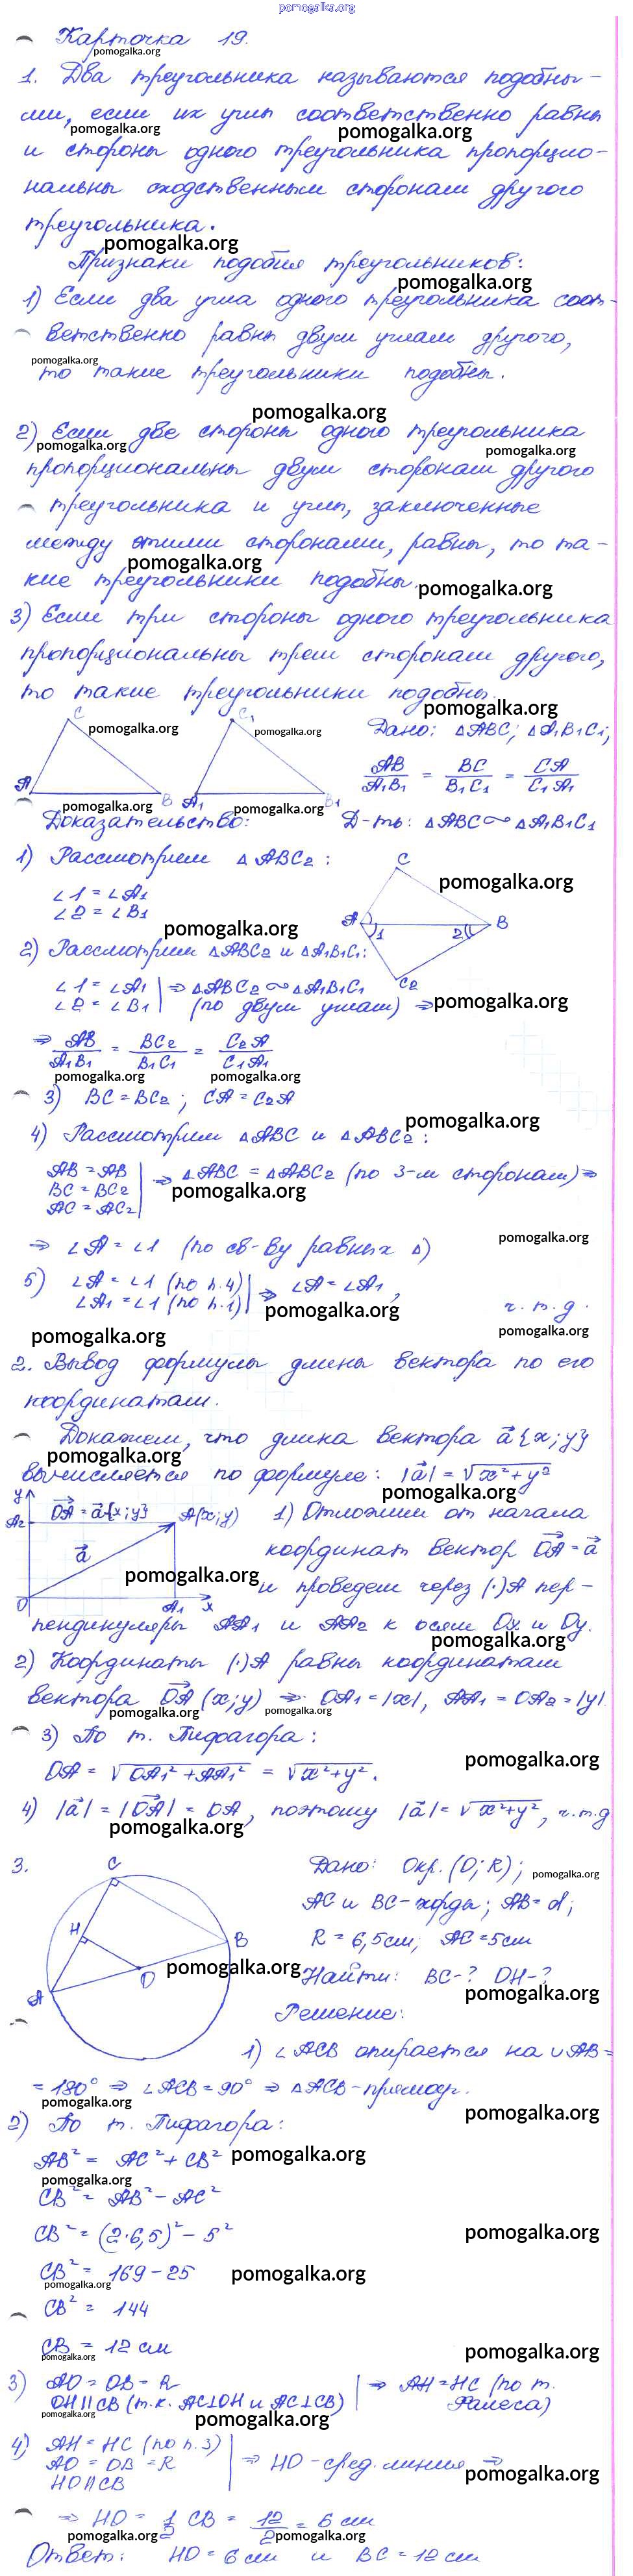 pomogalka.org
Карточка 19.
1. Два треугольника называются подобны-
ми, если их углы соответственно равны
и стороны одного треугольника пропорцио-
нальны сходственным сторонам другого
треугольника.
Признаки подобия треугольников:
1) Если два угла одного треугольника соот-
ветственно равны двум углам другого,
то такие треугольники подобны.
2) Если две стороны одного треугольника
пропорциональны двум сторонам другого
треугольника и углы, заключенные
между этими сторонами, равны, то та-
кие треугольники подобны.
3) Если три стороны одного треугольника
пропорциональны трем сторонам другого,
то такие треугольники подобны.
C C₁ Дано: △ABC; △A₁B₁C₁;
AB/A₁B₁ = BC/B₁C₁ = CA/C₁A₁
A B A₁ B₁
Доказательство: Д-ть: △ABC ∾ △A₁B₁C₁
1) Рассмотрим △ABC₂:
∠1 = ∠A₁
∠2 = ∠B₁
C A 1 2 B C₂
2) Рассмотрим △ABC₂ и △A₁B₁C₁:
∠1 = ∠A₁ | ⇒ △ABC₂ ∾ △A₁B₁C₁
∠2 = ∠B₁ | (по двум углам) ⇒
⇒ AB/A₁B₁ = BC₂/B₁C₁ = C₂A/C₁A₁
3) BC = BC₂; CA = C₂A
4) Рассмотрим △ABC и △ABC₂:
AB = AB
BC = BC₂ | ⇒ △ABC = △ABC₂ (по 3-м сторонам) ⇒
AC = AC₂
⇒ ∠A = ∠1 (по св-ву равных △)
5) ∠A = ∠1 (по п.4) | ⇒ ∠A = ∠A₁,
∠A₁ = ∠1 (по п.1) | ч.т.д.
2. Вывод формулы длины вектора по его
координатам.
Докажем, что длина вектора a⃗{x;y}
вычисляется по формуле: |a⃗| = √x²+y²
y OA⃗ = a⃗{x;y} A(x;y) A₂ a⃗ O A₁ x
1) Отложим от начала
координат вектор OA⃗ = a⃗
и проведем через (·)A пер-
пендикуляры AA₁ и AA₂ к осям Ox и Oy.
2) Координаты (·)A равны координатам
вектора OA⃗ (x;y) ⇒ OA₁ = |x|, AA₁ = OA₂ = |y|
3) По т. Пифагора:
OA = √OA₁²+AA₁² = √x²+y².
4) |a⃗| = |OA⃗| = OA, поэтому |a⃗| = √x²+y², ч.т.д
3. Дано: Окр.(O;R);
AC и BC-хорды; AB=d;
R = 6,5см; AC=5см
Найти: BC-? OH-?
C H B O A
Решение:
1) ∠ACB опирается на ∪AB=
= 180° ⇒ ∠ACB = 90° ⇒ △ACB-прямоуг.
2) По т. Пифагора:
AB² = AC² + CB²
CB² = AB² - AC²
CB² = (2·6,5)² - 5²
CB² = 169 - 25
CB² = 144
CB = 12 см
3) AO = OB = R | ⇒ AH=HC (по т.
OH||CB (т.к. AC⊥OH и AC⊥CB) | Фалеса)
4) AH = HC (по п.3)
AO = OB = R | ⇒ HO-сред.линия ⇒
HO||CB
⇒ HO = 1/2 CB = 12/2 = 6 см
Ответ: HO = 6 см и BC = 12 см